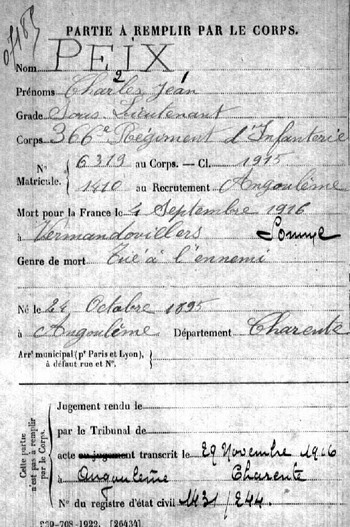 PARTIE À REMPLIR PAR LE CORPS.
Nom PEIX
2
Prénoms Charles Jean
Grade Sous Lieutenant
Corps 366e Régiment d'Infanterie
N° 6319 au Corps. — Cl. 1915
Matricule. 1410 au Recrutement Angoulême
Mort pour la France le 4 Septembre 1916
à Vermandovillers Somme
Genre de mort Tué à l'ennemi
Né le 24 Octobre 1895
à Angoulême Département Charente
Arrt municipal (pr Paris et Lyon),
à défaut rue et N°.
Cette partie
n'est pas à remplir
par le Corps.
Jugement rendu le
par le Tribunal de
acte ou jugement transcrit le 29 Novembre 1916
à Angoulême Charente
N° du registre d'état civil 1431/244
-708-1922. [26434]